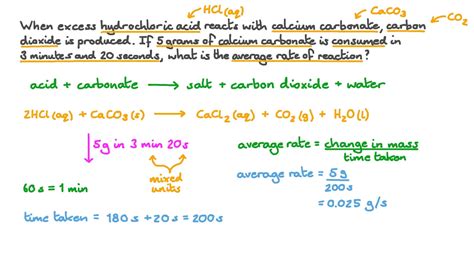 HCl(aq)
CaCO3
CO2
When excess hydrochloric acid reacts with calcium carbonate, carbon
dioxide is produced. If 5 grams of calcium carbonate is consumed in
3 minutes and 20 seconds, what is the average rate of reaction?
acid + carbonate → salt + carbon dioxide + water
2HCl(aq) + CaCO3(s) → CaCl2(aq) + CO2(g) + H2O(l)
5g in 3 min 20s
mixed
units
60s = 1 min
time taken = 180s + 20s = 200s
average rate = change in mass
time taken
average rate = 5g
200s
= 0.025 g/s